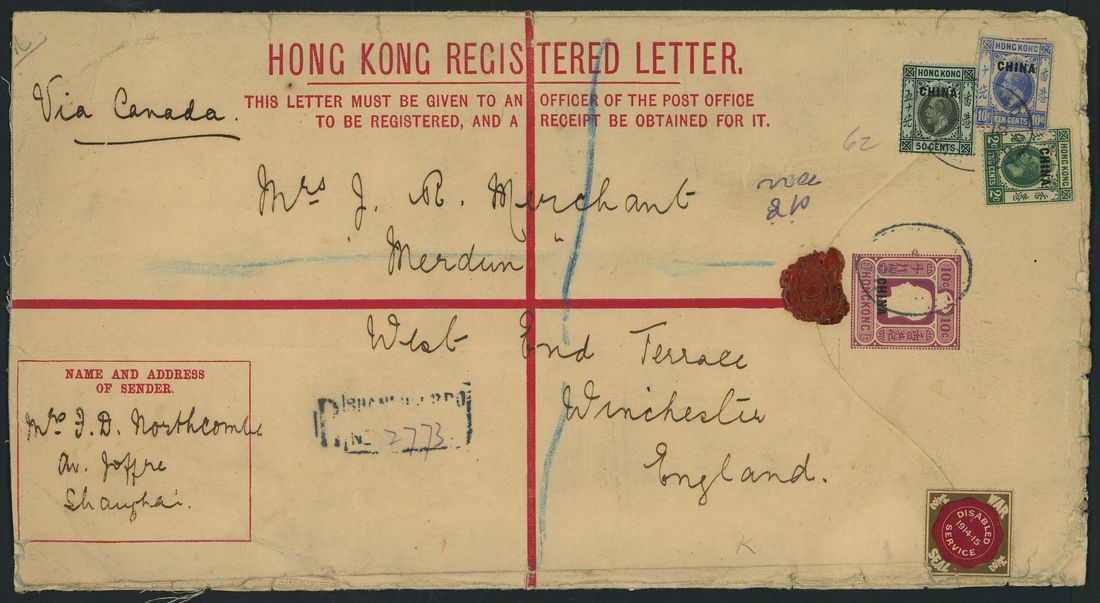 HONG KONG REGISTERED LETTER.
THIS LETTER MUST BE GIVEN TO AN OFFICER OF THE POST OFFICE
TO BE REGISTERED, AND A RECEIPT BE OBTAINED FOR IT.
Via Canada.
HONG KONG
CHINA
50 CENTS
HONG KONG
CHINA
10c TEN CENTS 10c
HONG KONG
CHINA
2c TWO CENTS 2c
62
Mrs J. R. Merchant
"Merdun"
West End Terrace
Winchester
England.
HONGKONG
CHINA
10c 10c
NAME AND ADDRESS
OF SENDER.
Mrs F. D. Northcombe
Av. Joffre
Shanghai.
R
No 2773
WAR
SEAL
DISABLED
1914-15
SERVICE
K